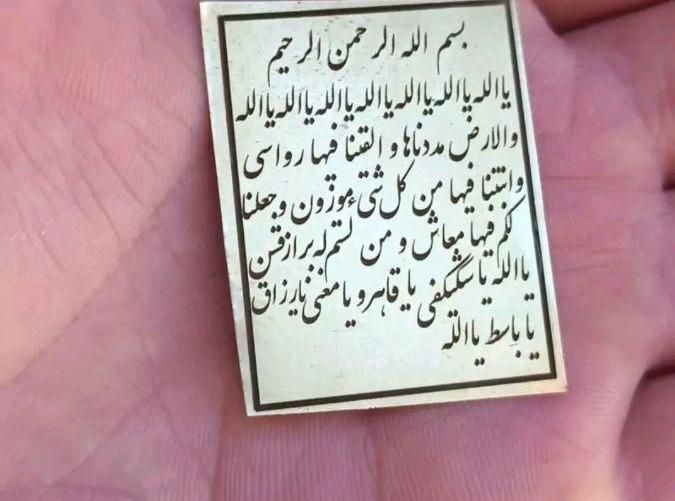 بسم الله الرحمن الرحیم
یاالله یاالله یاالله یاالله یاالله یاالله یاالله
والارض مددناها و القینا فیها رواسی
وانبتنا فیها من کل شیء موزون وجعلنا
لکم فیها معاش و من لستم له برازقین
یاالله یا یا قاهرو یا مغنی یارزاق
یا باسط یاالله